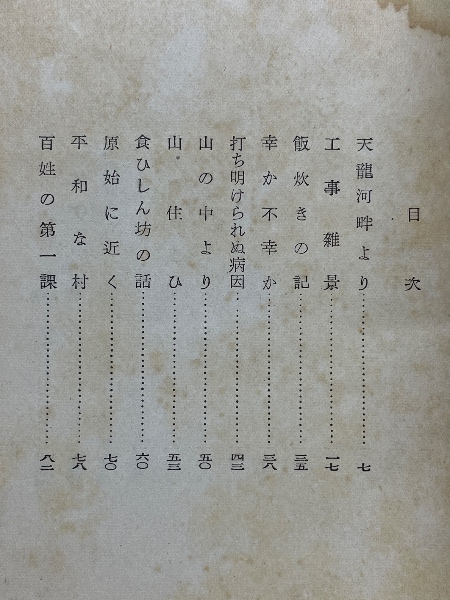 目次
天龍河畔より……………………七
工事雑景……………………一七
飯炊きの記……………………三五
幸か不幸か……………………三八
打ち明けられぬ病因……………………四三
山の中より……………………五〇
山住ひ……………………五三
食ひしん坊の話……………………六〇
原始に近く……………………七〇
平和な村……………………七八
百姓の第一課……………………八二